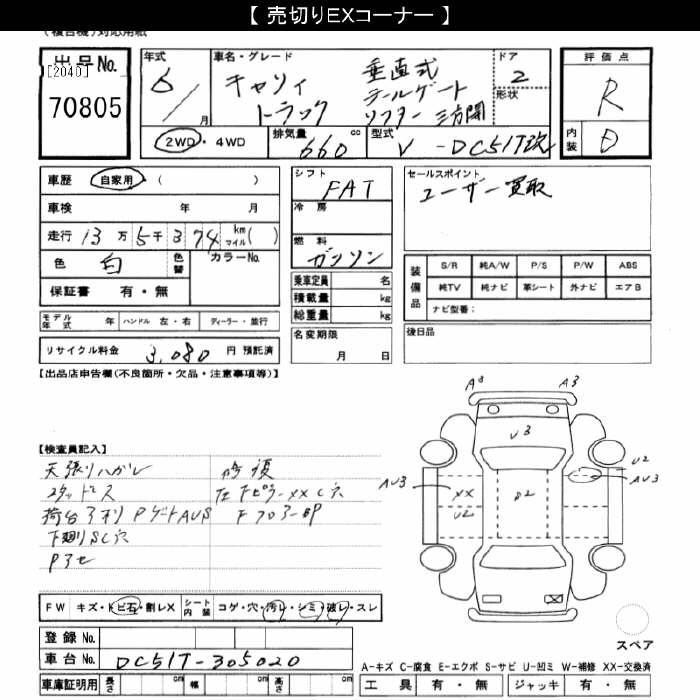 【 売切りEXコーナー 】
(複合機)対応用紙
出品No. [2040] 70805
年式 6/ 月
車名・グレード キャリィトラック 垂直式テールゲートリフター 三方開
ドア 2
形状
2WD・4WD
排気量 660 cc
型式 V-DC51T改
評価点 R
内装 D
車歴 自家用・( )
車検 年 月
走行 13万5千374 km マイル( )
色 白 色替 カラーNo.
保証書 有・無
モデル年式 年 ハンドル 左・右 ディーラー・並行
リサイクル料金 3,080 円 預託済
シフト FAT
冷房
燃料 ガソリン
乗車定員 名
積載量 kg
総重量 kg
名変期限 月 日
セールスポイント ユーザー買取
装備品 S/R 純A/W P/S P/W ABS
純TV 純ナビ 革シート 外ナビ エアB
ナビ型番:
後日品
【出品店申告欄(不良箇所・欠品・注意事項等)】
【検査員記入】
天張りハガレ
スタッドレス
荷台 Pゲート AU3
下廻りSC穴
Pアセ
修復
左 下ピラーXX C穴
Fフロアー
A3 A3
U3
U2
AU3
AU3
XX
U2
D2
FW キズ・トビ石・割レX シート内装 コゲ・穴・汚レ・シミ・破レ・スレ
登録No.
車台No. DC51T-305020
車庫証明用 長さ cm 幅 cm 高さ cm
スペア
A-キズ C-腐食 E-エクボ S-サビ U-凹ミ W-補修 XX-交換済
工具 有・無 ジャッキ 有・無